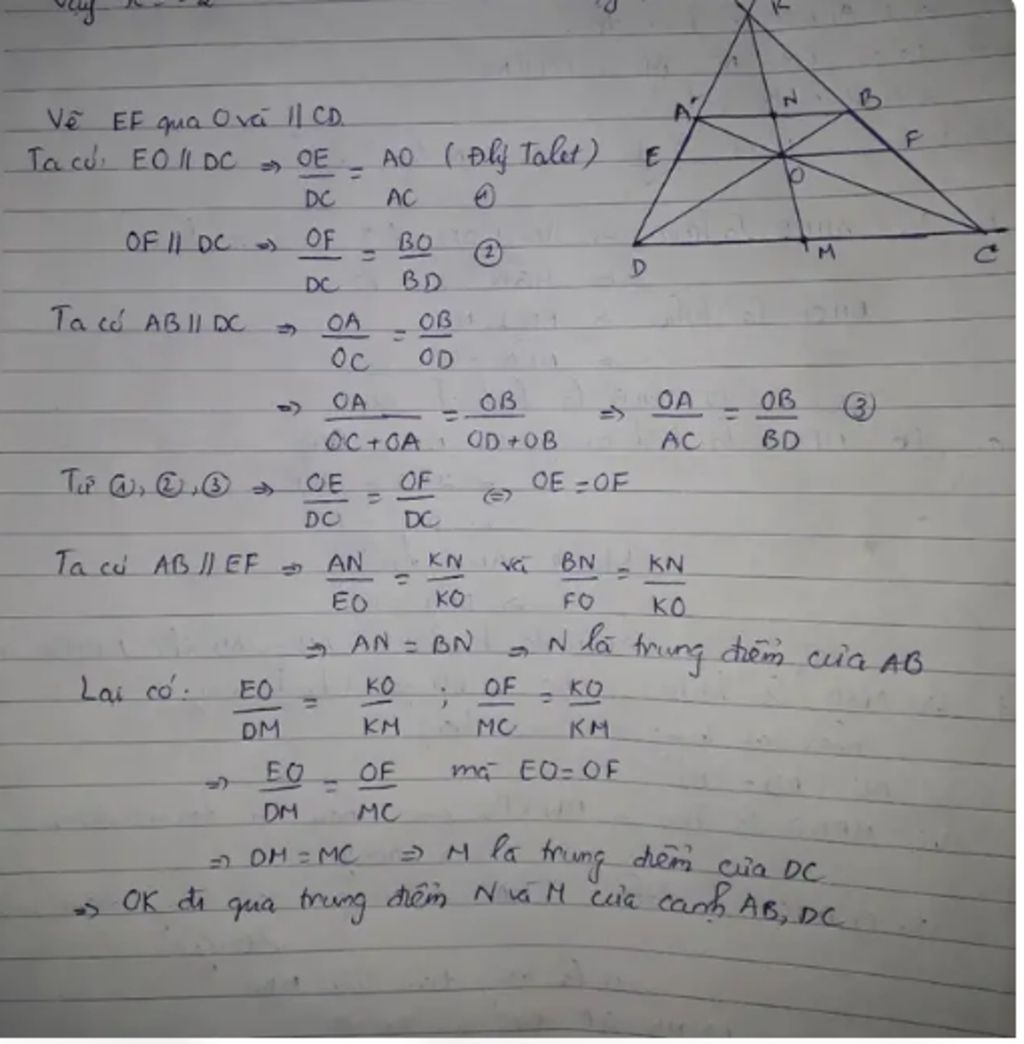 K
Vẽ EF qua O và // CD.
Ta có: EO // DC => OE/DC = AO/AC (Đlý Talet) ①
OF // DC => OF/DC = BO/BD ②
A N B
E F
O
D M C
Ta có AB // DC => OA/OC = OB/OD
=> OA/OC+OA = OB/OD+OB => OA/AC = OB/BD ③
Từ ①, ②, ③ => OE/DC = OF/DC <=> OE = OF
Ta có AB // EF => AN/EO = KN/KO và BN/FO = KN/KO
=> AN = BN => N là trung điểm của AB
Lại có: EO/DM = KO/KM ; OF/MC = KO/KM
=> EO/DM = OF/MC mà EO = OF
=> DM = MC => M là trung điểm của DC
=> OK đi qua trung điểm N và M của cạnh AB, DC